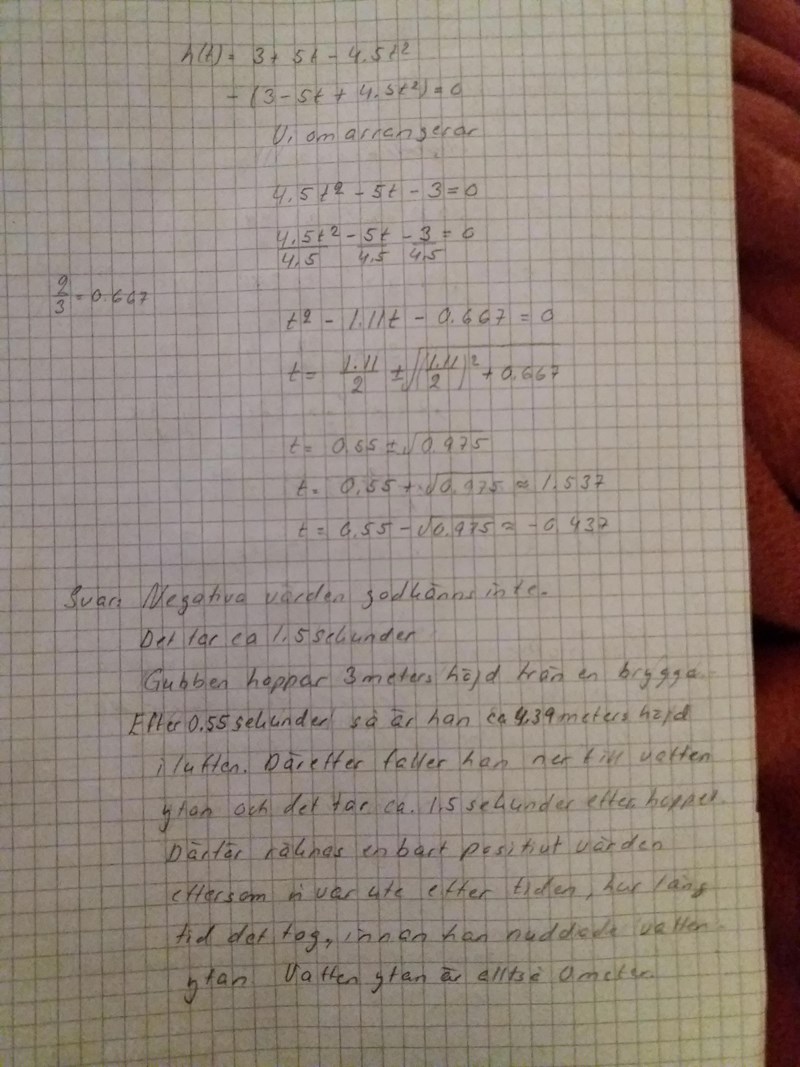 h(t) = 3 + 5t - 4.5t²
- (3 - 5t + 4.5t²) = 0
Vi omarrangerar
4.5t² - 5t - 3 = 0
4.5t²/4.5 - 5t/4.5 - 3/4.5 = 0
2/3 = 0.667
t² - 1.11t - 0.667 = 0
t = 1.11/2 ± √((1.11/2)² + 0.667)
t = 0,55 ± √0.975
t = 0,55 + √0.975 ≈ 1.537
t = 0.55 - √0.975 ≈ -0.437
Svar: Negativa värden godkänns inte.
Det tar ca 1,5 sekunder
Gubben hoppar 3 meters höjd från en brygga.
Efter 0.55 sekunder så är han ca 4.39 meters höjd
i luften. Därefter faller han ner till vatten
ytan och det tar ca. 1,5 sekunder efter hoppet.
Därför räknas enbart positivt värden
eftersom vi var ute efter tiden, hur lång
tid det tog, innan han nuddade vatten
ytan Vatten ytan är alltså 0 meter.